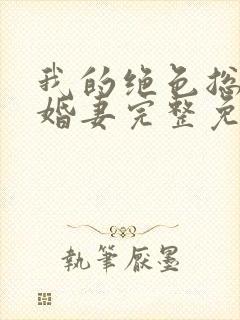 我的绝色总
婚妻完整免
執筆厭墨